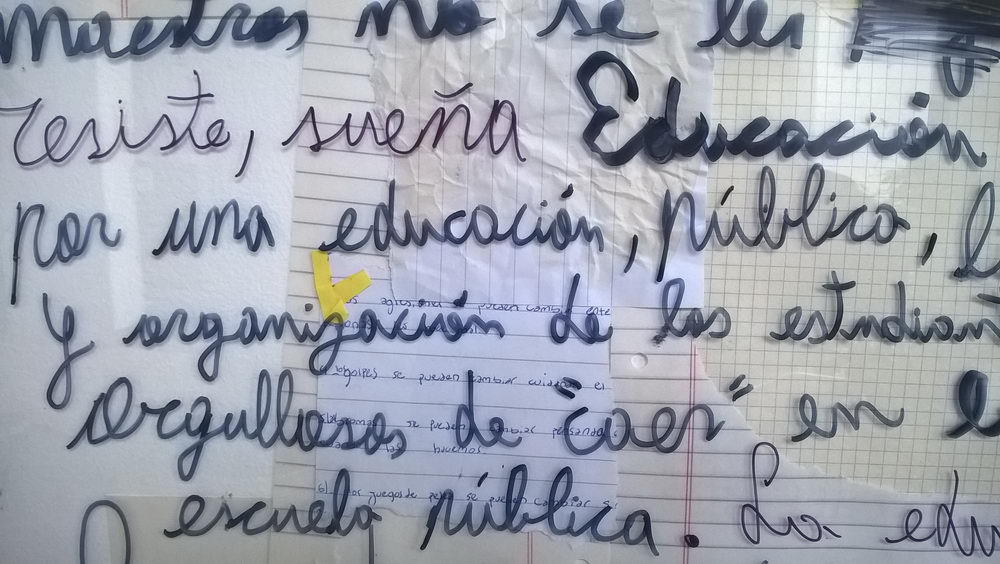 maestros no se les
resiste, sueña Educación
por una educación, pública,
y organización de los estudiant
orgullosos de "caer" en
escuela pública. La edu
pueden cambiar
golpes se pueden cambiar
se pueden cambiar
buenos
6) los juegos de se pueden cambiar